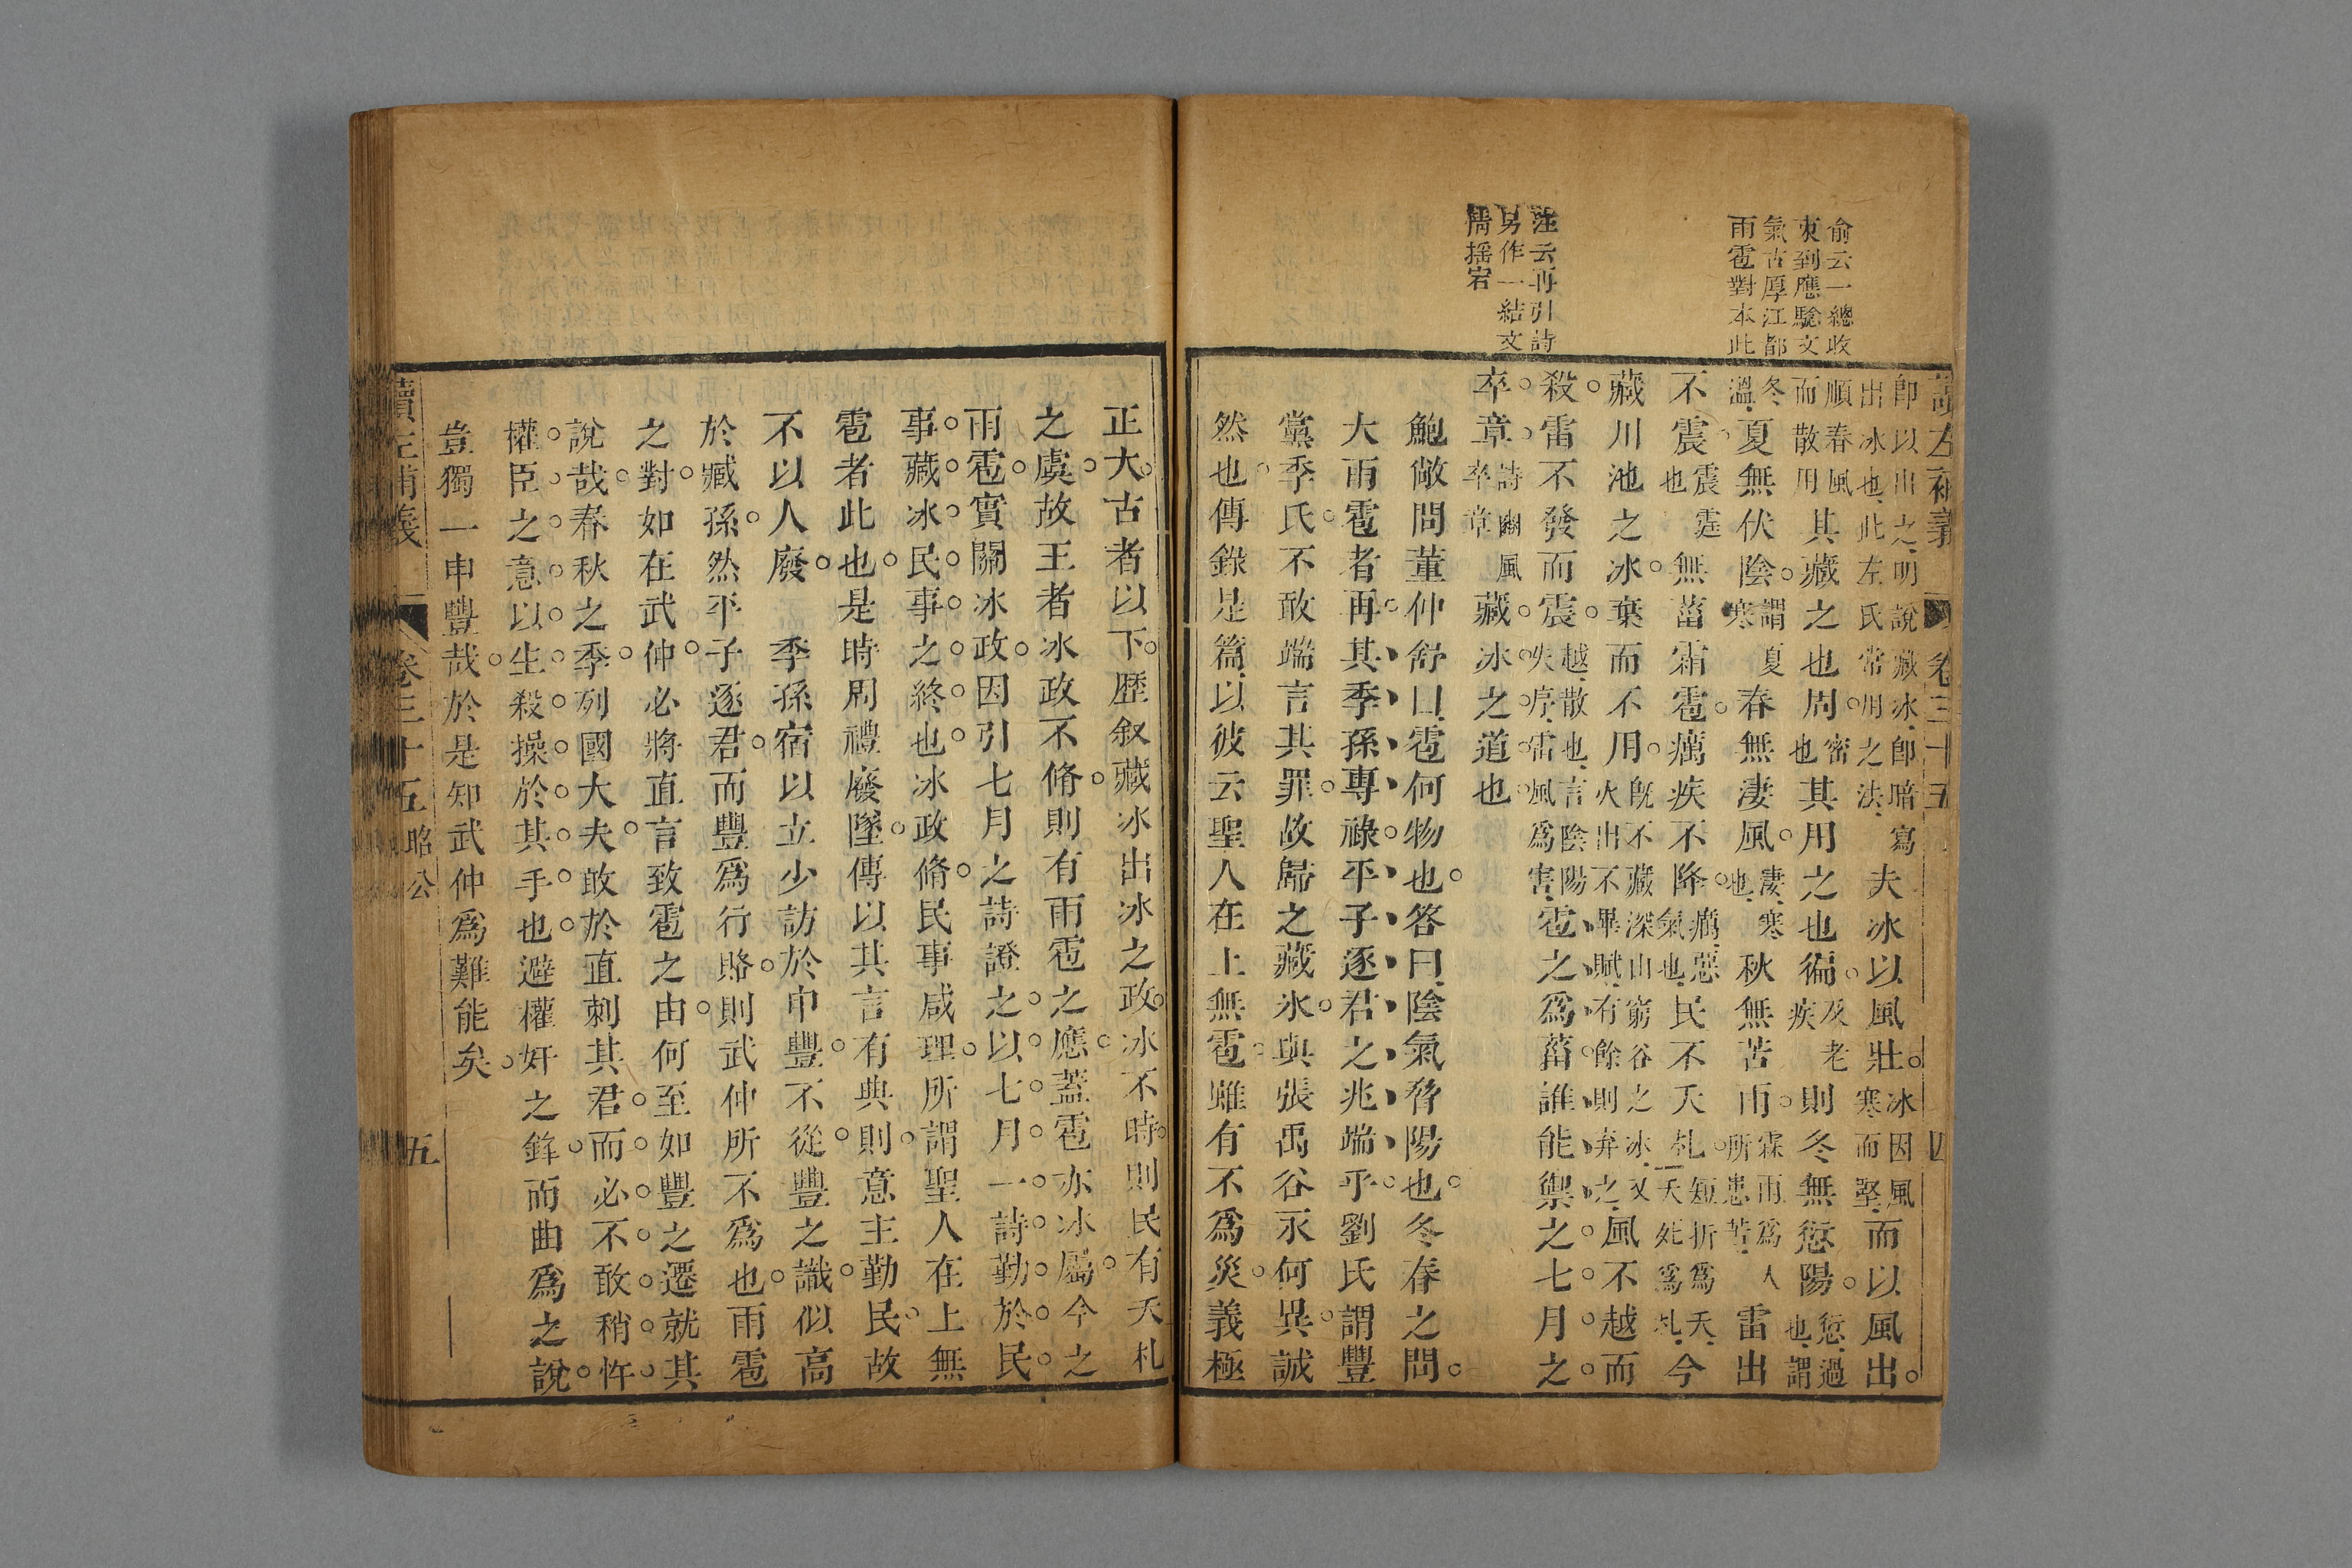 俞云一總收
束到應驗文
氣古厚江都
雨雹對本此
汪云再引詩
另作一結文
情搖宕
讀左補義 卷三十五 四
卽以出之明說藏冰卽暗寫
出冰也此左氏常用之法
夫冰以風壯冰因風
寒而堅而以風出
順春風
而散用其藏之也周密
也其用之也徧及老
疾則冬無愆陽愆過
也謂
冬
溫夏無伏陰謂夏
寒春無淒風淒寒
也秋無苦雨霖雨爲人
所患苦雷出
不震震霆
也無菑霜雹癘疾不降癘惡
氣也民不夭札短折爲夭
夭死爲札今
藏川池之冰棄而不用旣不藏深山窮谷之冰又
火出不畢賦有餘則弃之風不越而
殺雷不發而震越散也言陰陽
失序雷風爲害雹之爲菑誰能禦之七月之
卒章詩豳風
卒章藏冰之道也
鮑敞問董仲舒曰雹何物也答曰陰氣脅陽也冬春之問
大雨雹者再其季孫專祿平子逐君之兆端乎劉氏謂豐
黨季氏不敢端言其罪故歸之藏氷與張禹谷永何異誠
然也傳錄是篇以彼云聖人在上無雹雖有不爲災義極
正大古者以下歷敘藏冰出冰之政冰不時則民有夭札
之虞故王者冰政不脩則有雨雹之應蓋雹亦冰屬今之
雨雹實關冰政因引七月之詩證之以七月一詩勤於民
事藏冰民事之終也冰政脩民事咸理所謂聖人在上無
雹者此也是時周禮廢墜傳以其言有典則意主勤民故
不以人廢 季孫宿以立少訪於申豐不從豐之識似高
於臧孫然平子逐君而豐爲行賂則武仲所不爲也雨雹
之對如在武仲必將直言致雹之由何至如豐之遷就其
說哉春秋之季列國大夫敢於直刺其君而必不敢稍忤
權臣之意以生殺操於其手也避權奸之鋒而曲爲之說
豈獨一申豐哉於是知武仲爲難能矣
讀左補義 卷三十五 昭公 五